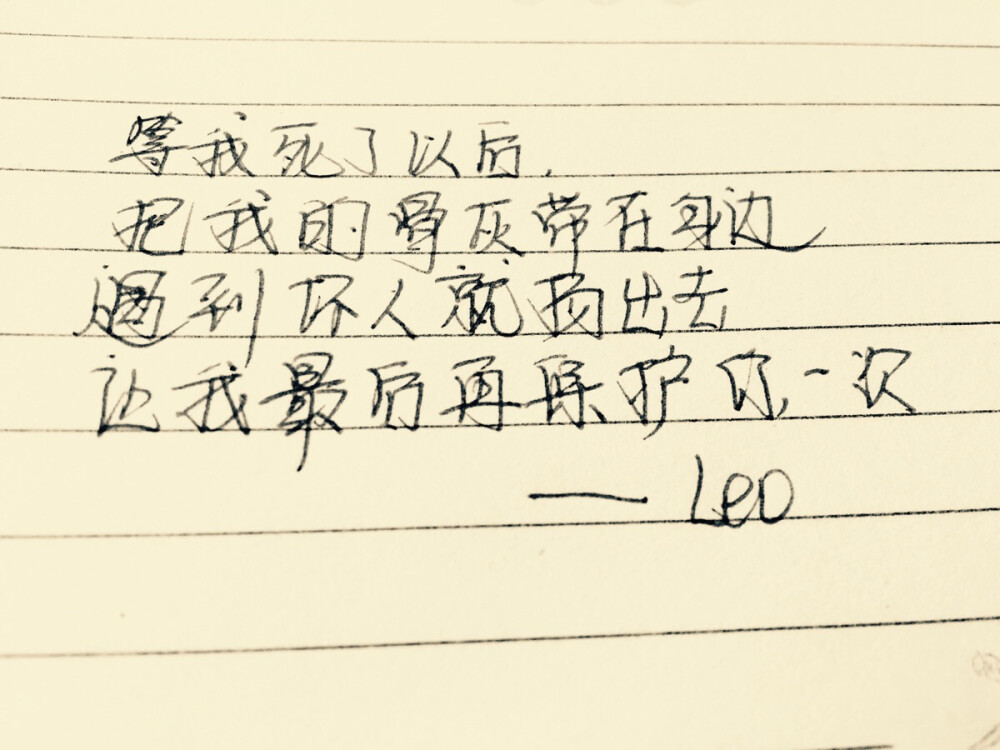 等我死了以后.
把我的骨灰带在身边
遇到坏人就扬出去
让我最后再保护你一次
—— Leo